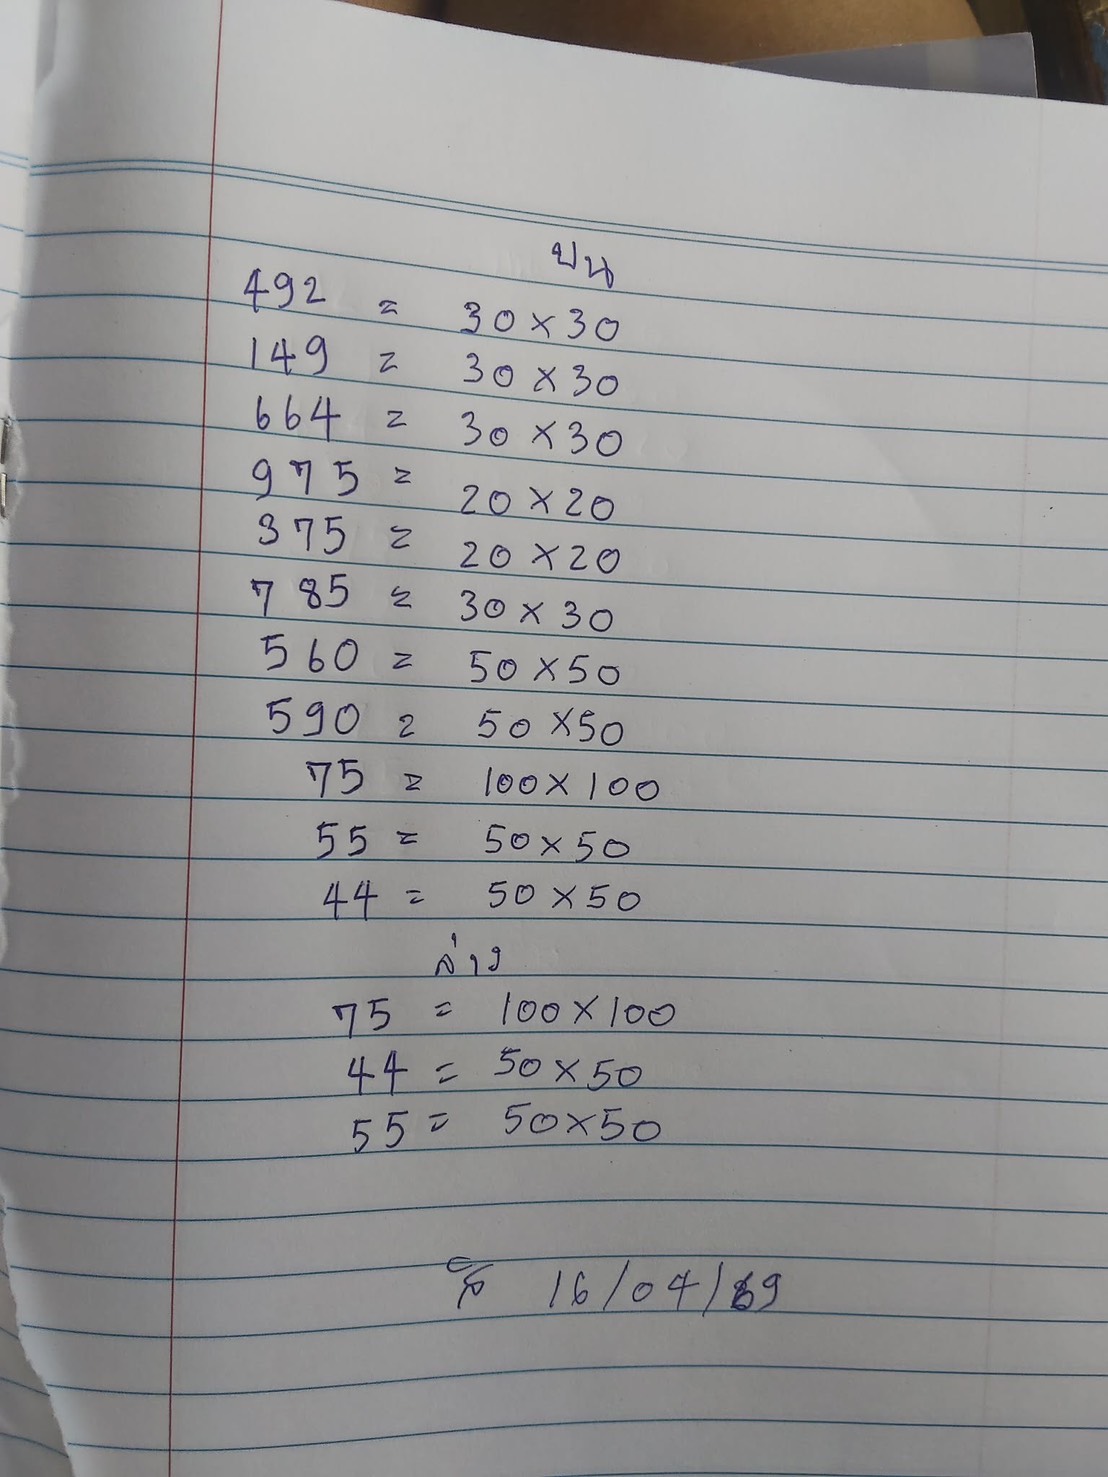 บน
492 = 30×30
149 = 30×30
664 = 30×30
975 = 20×20
375 = 20×20
785 = 30×30
560 = 50×50
590 = 50×50
75 = 100×100
55 = 50×50
44 = 50×50
ล่าง
75 = 100×100
44 = 50×50
55 = 50×50
16/04/69